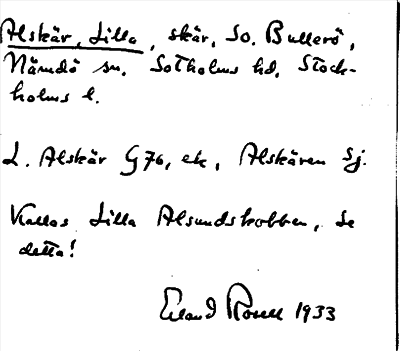 Alskär, Lilla, skär, So. Bullerö,
Nämdö sn. Sotholms hd. Stock-
holms l.
L. Alskär G 76, ek, Alskären Sj.
Kallas Lilla Alsundskobben, se
detta!
Erland Rosell 1933